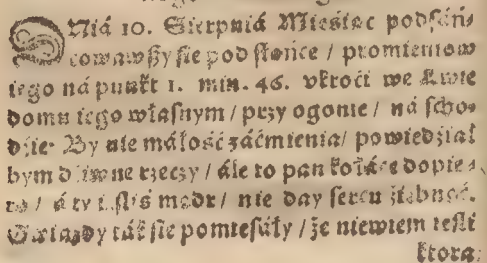 Dniá 10. Sierpniá Mieśiąc podſáń⸗
cowawßy ſie pod ſłońce / promieniow
iego ná punkt 1. min. 46. vkroći we Lwie
domu iego własnym / przy ogonie / ná ſcho⸗
dźie. By nie máłość záćmienia / powiedźiał
bym dźiwne rzeczy / ále to pan dopie⸗
ro / á ty ieſliś mądr / nie day ſercu źiębnąć.
Gwiazdy ták ſie pomieſáły / że niewiem ieſli
ktora